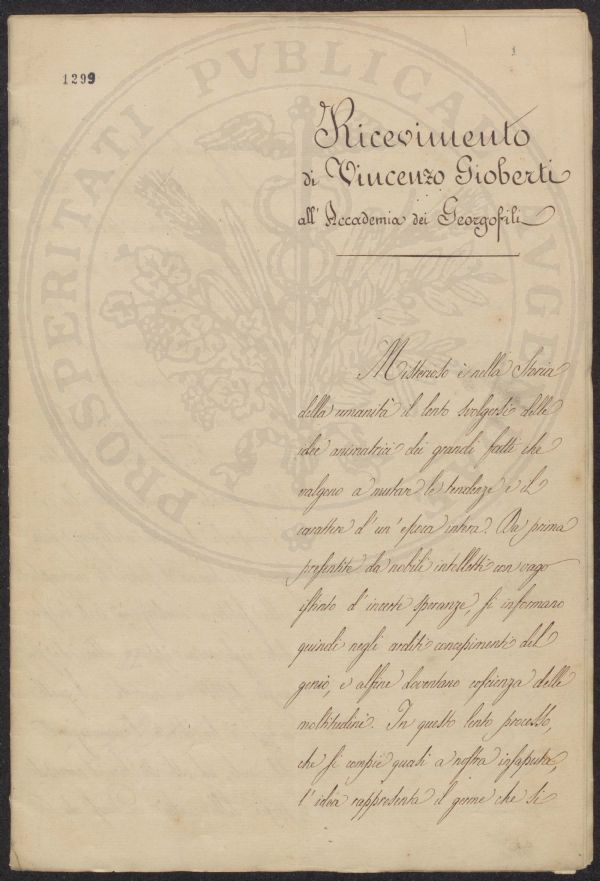 1299
1
Ricevimento
di Vincenzo Gioberti
all'Accademia dei Georgofili
Misterioso è nella Storia
della umanità il lento svolgersi delle
idee animatrici dei grandi fatti che
valgono a mutare le tendenze e il
carattere d'un'epoca intera. Da prima
presentite da nobili intelletti con vago
istinto d'incerte speranze, si informano
quindi negli arditi concepimenti del
genio, e alfine doventano coscienza delle
moltitudini. In questo lento processo,
che si compie quasi a nostra insaputa,
l'idea rappresenta il germe che si
PROSPERITATI PVBLICAE AVGENDAE